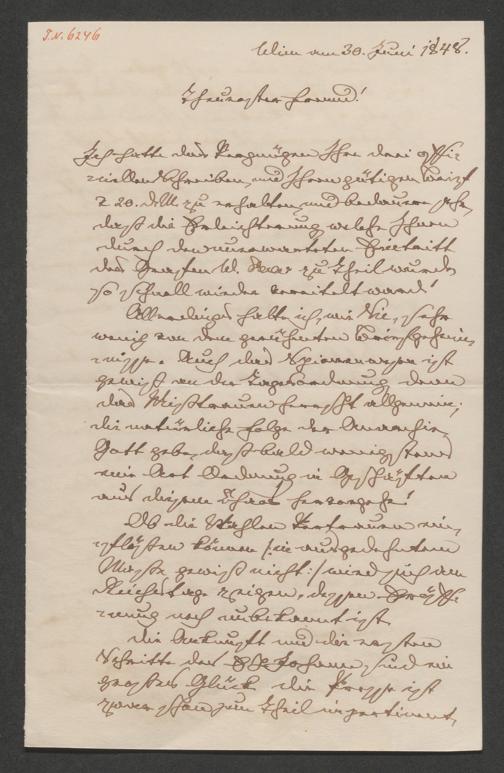 J.N. 6246
Wien am 30. Juni 1848.
Theuerster Freund!
Ich hatte das Vergnügen Ihre drei offi-
ciellen Schreiben, und Ihren gütigen Brief
v. 20. d. M. zu erhalten, und bedaure sehr,
daß die Erleichterung welche Ihnen
durch den unerwarteten Beitritt
des Grafen zu Theil wurde
so schnell wieder vereitelt ward!
Allerdings halte ich, wie Sie, sehr
wenig von dem gerühmten
Auch das Spionenwesen ist
gewiß an der Tagesordnung, denn
das Mißtrauen herrscht allgemein;
die natürliche Folge der Anarchie.
Gott gebe, daß bald wenigstens
eine Art Ordnung in Geschäften
aus diesem Chaos hervorgehe!
Ob die Wahlen Vertrauen ein-
flößen können /: in ausgedehntem
Maße gewiß nicht :/ wird sich am
Reichstage zeigen, dessen Eröff-
nung noch unbekannt ist.
Die Ankunft und die ersten
Schritte des Johann, sind ein
großes Glück, die Presse ist
zwar schon zum Theil impertinent,